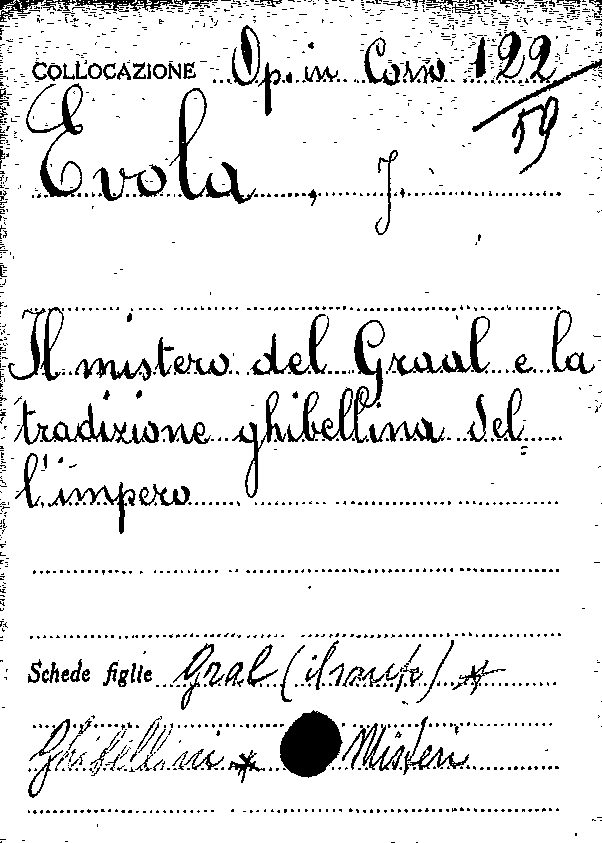 COLLOCAZIONE Op. in Corso 122
59
Evola, J.
Il mistero del Graal e la
tradizione ghibellina del
l'impero
Schede figlie Gral (il santo) *
Ghibellini * Misteri